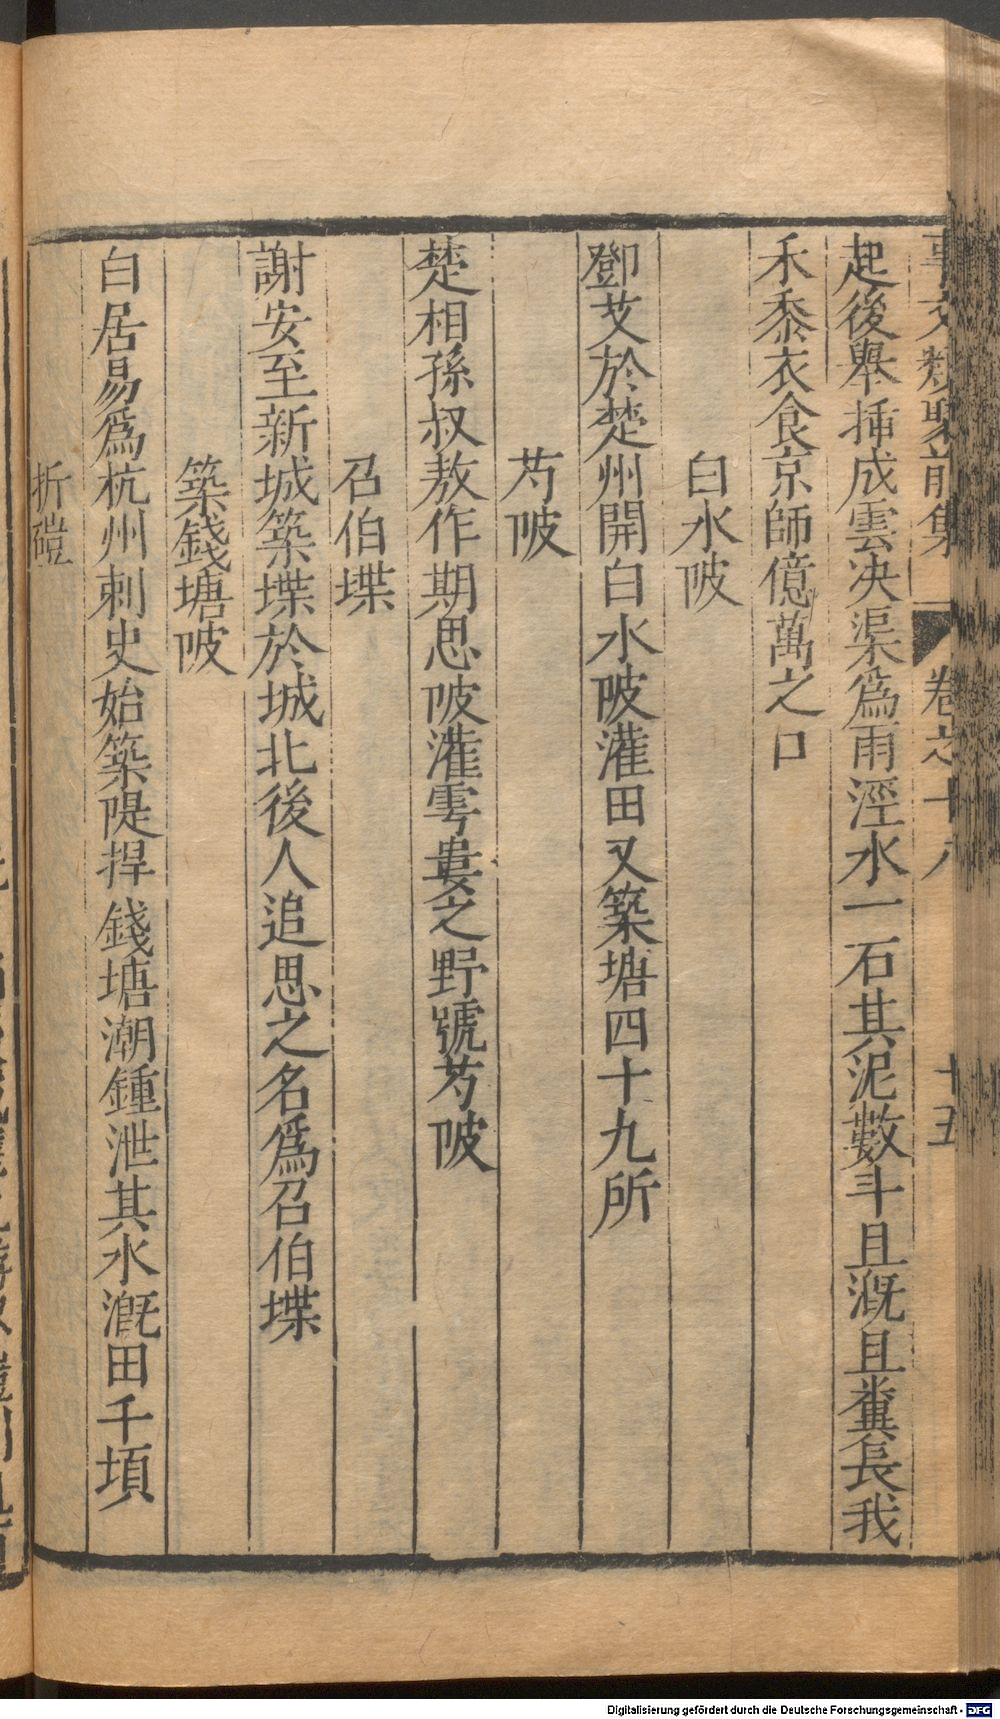 事文類聚前集 卷之十八 十五
起後舉揷成雲决渠爲雨涇水一石其泥數斗且漑且糞長我
禾黍衣食京師億萬之口
白水陂
鄧艾於楚州開白水陂灌田又築塘四十九所
芍陂
楚相孫叔敖作期思陂灌雩婁之野號芍陂
召伯堞
謝安至新城築堞於城北後人追思之名爲召伯堞
築錢塘陂
白居易爲杭州刺史始築隄捍錢塘潮鍾泄其水漑田千頃
折磑
Digitalisierung gefördert durch die Deutsche Forschungsgemeinschaft - DFG